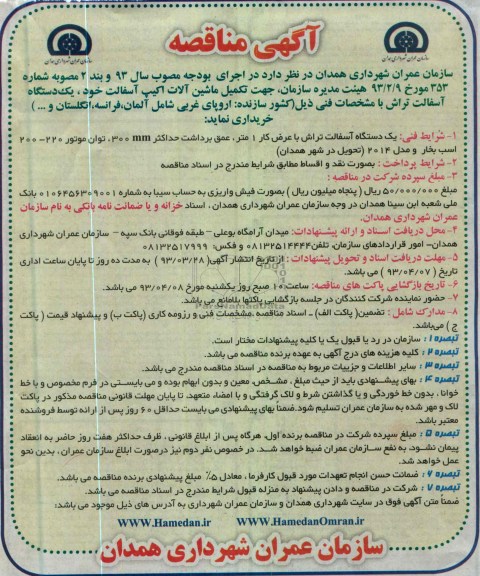 آگهی مناقصه
سازمان عمران شهرداری همدان در نظر دارد در اجرای بودجه مصوب سال ۹۳ و بند ۲ مصوبه شماره
۳۵۳ مورخ ۹۳/۲/۹ هیئت مدیره سازمان، جهت تکمیل ماشین آلات اکیپ آسفالت خود ، یک‌دستگاه
آسفالت تراش با مشخصات فنی ذیل(کشور سازنده: اروپای غربی شامل آلمان،فرانسه،انگلستان و ... )
خریداری نماید:
۱- شرایط فنی: یک دستگاه آسفالت تراش با عرض کار ۱ متر، عمق برداشت حداکثر ۳۰۰ mm، توان موتور ۲۲۰- ۲۰۰
اسب بخار و مدل ۲۰۱۴ (تحویل در شهر همدان)
۲- شرایط پرداخت : بصورت نقد و اقساط مطابق شرایط مندرج در اسناد مناقصه
۳- مبلغ سپرده شرکت در مناقصه :
مبلغ ۵۰/۰۰۰/۰۰۰ ریال ( پنجاه میلیون ریال ) بصورت فیش واریزی به حساب سیبا به شماره ۰۱۰۶۴۵۶۳۰۹۰۰۱ بانک
ملی شعبه ابن سینا همدان در وجه سازمان عمران شهرداری همدان ، اسناد خزانه و یا ضمانت نامه بانکی به نام سازمان
عمران شهرداری همدان.
۴- محل دریافت اسناد و ارائه پیشنهادات: میدان آرامگاه بوعلی – طبقه فوقانی بانک سپه – سازمان عمران شهرداری
همدان- امور قراردادهای سازمان، تلفن۰۸۱۳۲۵۱۴۴۴۴ و فکس: ۰۸۱۳۲۵۱۷۹۹۹
۵- مهلت دریافت اسناد و تحویل پیشنهادات : از تاریخ انتشار آگهی( ۹۳/۰۳/۲۸ ) به مدت ده روز تا پایان ساعت اداری
تاریخ ( ۹۳/۰۴/۰۷ ) می باشد.
۶- تاریخ بازگشایی پاکت های مناقصه: ساعت ۱۰ صبح روز یکشنبه مورخ ۹۳/۰۴/۰۸ می باشد.
۷- حضور نماینده شرکت کنندگان در جلسه بازگشایی پاکتها بلامانع می باشد.
۸- مدارک شامل : تضمین( پاکت الف) ـ اسناد مناقصه ،مشخصات فنی و رزومه کاری (پاکت ب) و پیشنهاد قیمت ( پاکت
ج ) می‌باشد.
تبصره ۱ : سازمان در رد یا قبول یک یا کلیه پیشنهادات مختار است.
تبصره ۲ : کلیه هزینه های درج آگهی به عهده برنده مناقصه می باشد.
تبصره ۳ : سایر اطلاعات و جزییات مربوط به مناقصه در اسناد مناقصه مندرج می باشد.
تبصره ۴ : بهای پیشنهادی باید از حیث مبلغ ، مشخص، معین و بدون ابهام بوده و می بایستی در فرم مخصوص و با خط
خوانا ، بدون خط خوردگی و یا گذاشتن شرط و لاک گرفتگی و با امضاء متعهد، تا پایان مهلت قانونی مناقصه مذکور در پاکت
لاک و مهر شده به سازمان عمران تسلیم شود.ضمناً بهای پیشنهادی می بایست حداقل ۶۰ روز پس از ارائه توسط فروشنده
معتبر باشد.
تبصره ۵ : مبلغ سپرده شرکت در مناقصه برنده اول، هرگاه پس از ابلاغ قانونی ، ظرف حداکثر هفت روز حاضر به انعقاد
پیمان نشود، به نفع سازمان عمران ضبط خواهد شد. در خصوص نفر دوم نیز درصورت ابلاغ سازمان عمران، بدین نحو
عمل خواهد شد.
تبصره ۶ : ضمانت حسن انجام تعهدات مورد قبول کارفرما ، معادل ۵٪ مبلغ پیشنهادی برنده مناقصه می باشد.
تبصره ۷ : شرکت در مناقصه و دادن پیشنهاد به منزله قبول شرایط مندرج در اسناد مناقصه می باشد.
ضمناً متن آگهی فوق در سایت شهرداری همدان و سازمان عمران شهرداری به آدرس های ذیل موجود می باشد:
WWW.HamedanOmran.ir WWW.Hamedan.ir
سازمان عمران شهرداری همدان